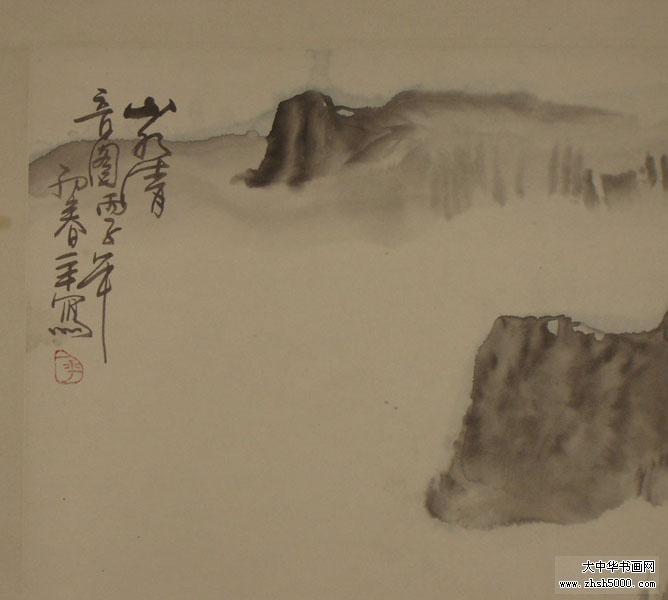 山水清
音图丙子年
初春一平写
大中华书画网
www.zhsh5000.com